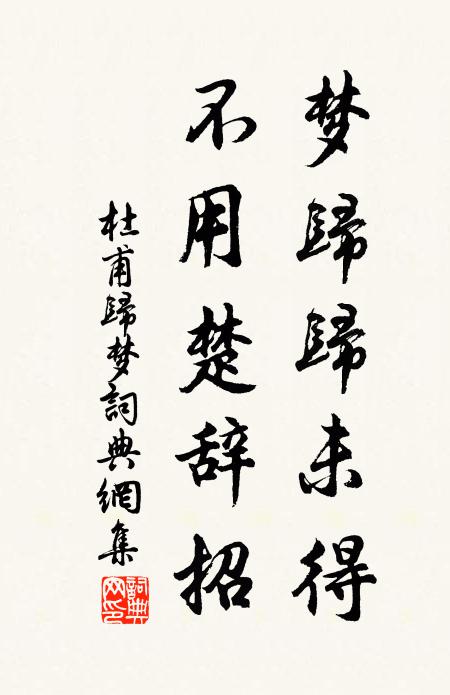 梦歸歸未得
不用楚辞招
杜甫歸梦詞典網集
詞典
网印